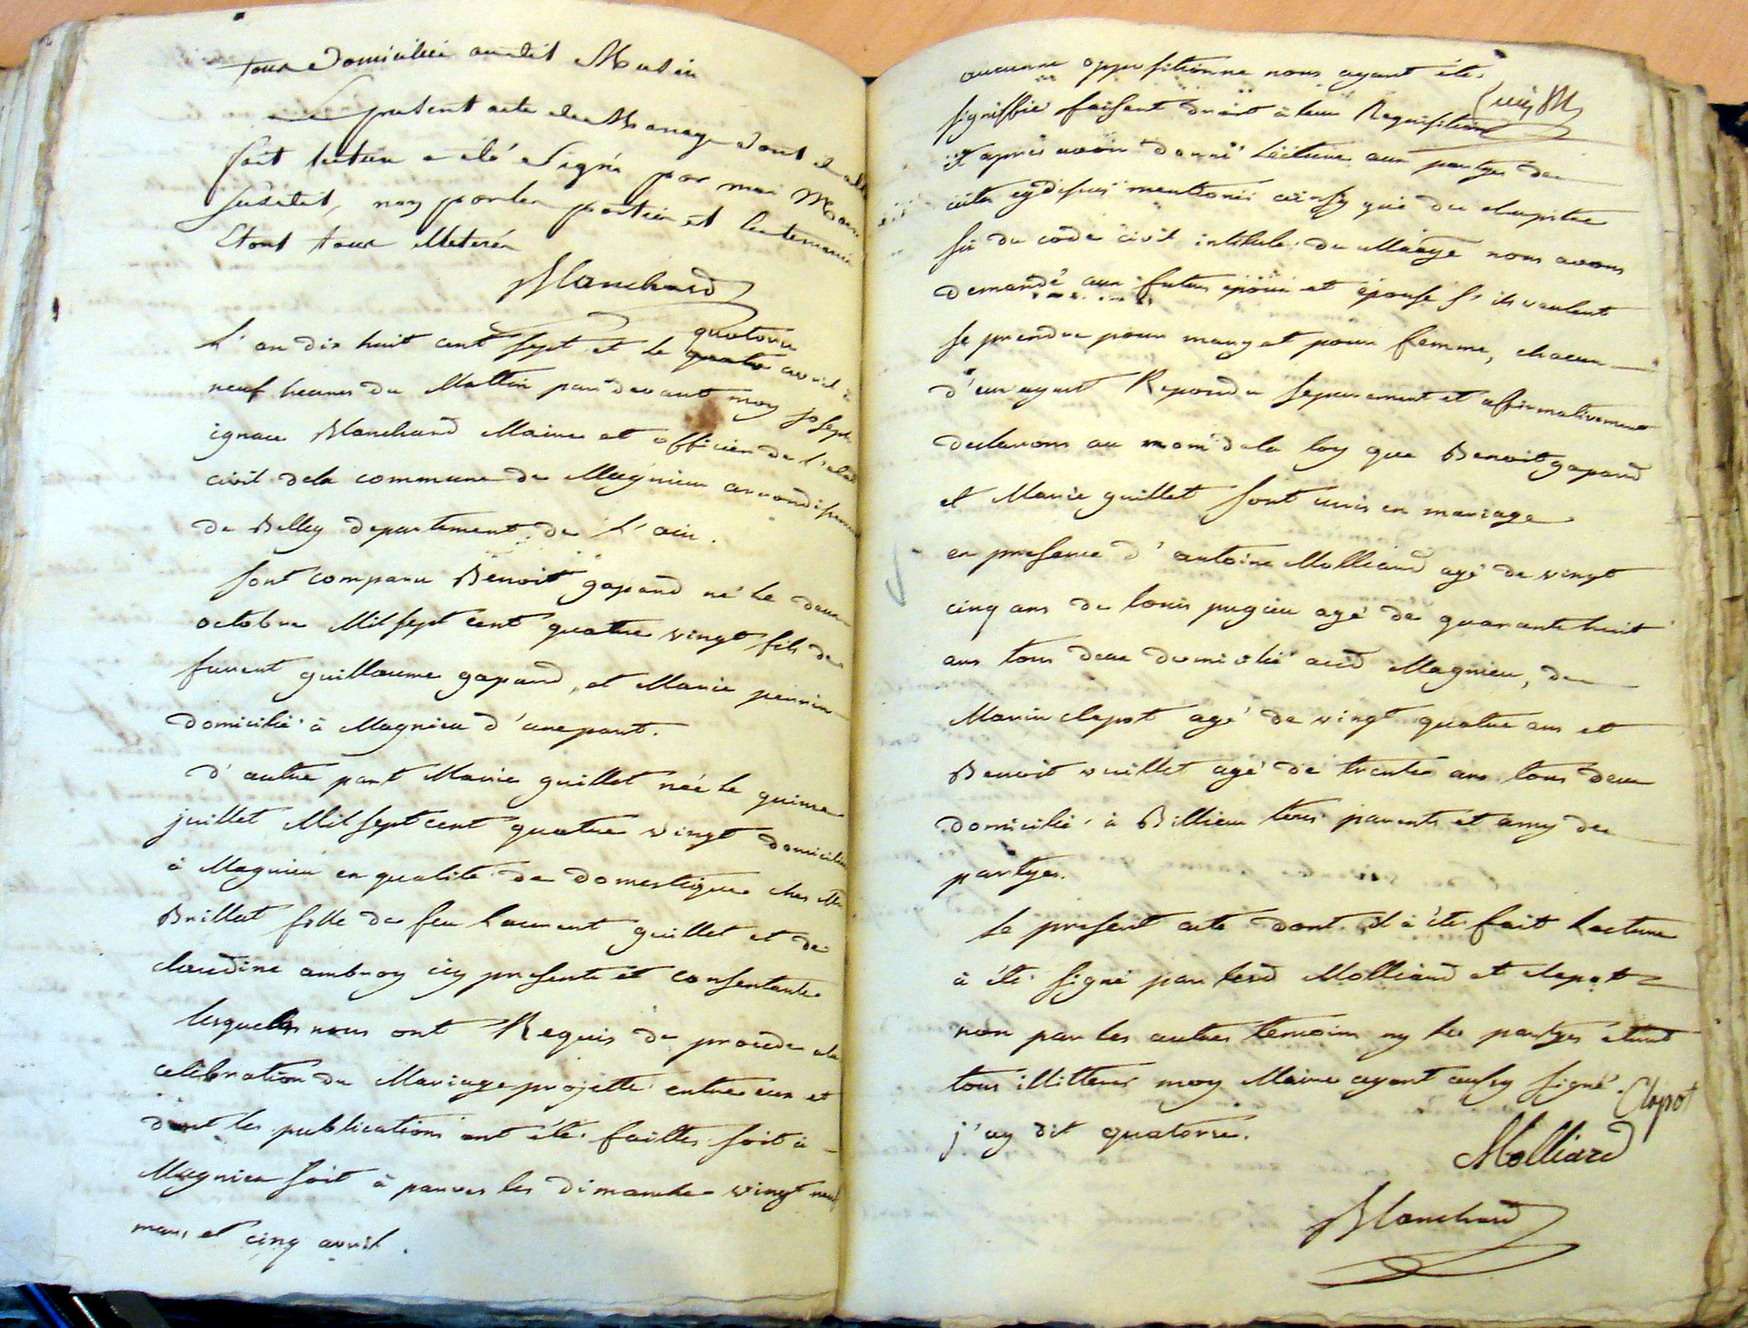 tous domicilié audit
present acte de Mariage dont il a été
fait lecture a été signé par moi Maire
susdit, non par les parties et les temoins
Etant tous illeteré
Blanchard
L'an dix huit cent sept et le quatorze avril à
neuf heures du Mattin par devant moy joseph
ignace Blanchard Maire et officier de l'etat
civil dela commune de Magnieu arrondissem
de Belley departement de l'ain.
sont comparu Benoit gapand né le deux
octobre Mil sept cent quatre vingt fils de
furent guillaume gapand, et Marie perrin
domicilié à Magnieu d'une part.
d'autre part Marie guillet née le quinze
juillet Mil sept cent quatre vingt domicilié
à Magnieu en qualité de domestique ches Mr
Brillat fille de feu Laurent guillet et de
claudine ambroy icy presente et consentante
lesquels nous ont Requis de procede a la
celebration du Mariage projetté entre eux et
dont les publications ont été faittes soit à
Magnieu soit à parves les dimanche vingt neuf
mars et cinq avril.
aucunne oppositionne nous ayant été
signiffié faisant droit à leur Requisition
et après avoir donné lecture aux partyes des
actes cydessus mentionés ainsy que du chapitre
six du code civil intitulé du Mariage nous avons
demandé aux futurs epoux et épouse s'ils veulent
se prendre pour mary et pour femme, chacun
d'eux ayant Repondu separement et affirmativement
declarons au nom dela loy que Benoit gapand
et Marie guillet sont unis en mariage
en presence d'antoine Molliard agé de vingt
cinq ans de louis pugieu agé de quarante huit
ans tous deux domicilié aud Magnieu, de
Marin clapot agé de vingt quatre ans et
Benoit vuillet agé de trente ans tous deux
domicilié à Billieu tous parents et amy des
partyes.
Le present acte dont il a été fait Lecture
à été signé par lesd Molliard et clapot
non par les autres temoins ny les partyes étant
tous illitteres moy Maire ayant aussy signé Clapot
j'ay dit quatorze.
Molliard
Blanchard